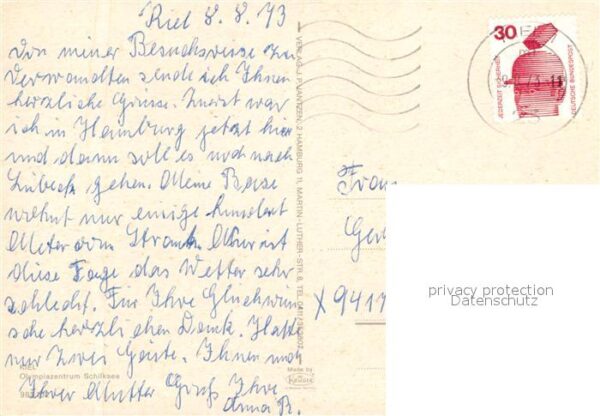 Kiel 8.8.73
Von meiner Besuchsreise zu
Verwandten sende ich Ihnen
herzliche Grüsse. Zuerst war
ich in Hamburg jetzt hier
und dann soll es noch nach
Lübeck gehen. Meine Base
wohnt nur einige hundert
Meter vom Strand. Aber ist
diese Tage das Wetter sehr
schlecht. Für Ihre Glückwün
sche herzlichen Dank. Hatte
nur zwei Gäste. Ihnen und
Ihrer Mutter Gruß Ihre
Anna R.
KIEL
Olympiazentrum Schilksee
VERLAG J. PLANTZEN, 2 HAMBURG 11, MARTIN-LUTHER-STR. 8, TEL.
Made by
Krüger
30
JEDERZEIT SICHERHEIT
DEUTSCHE BUNDESPOST
Frau
X 9417
privacy protection
Datenschutz